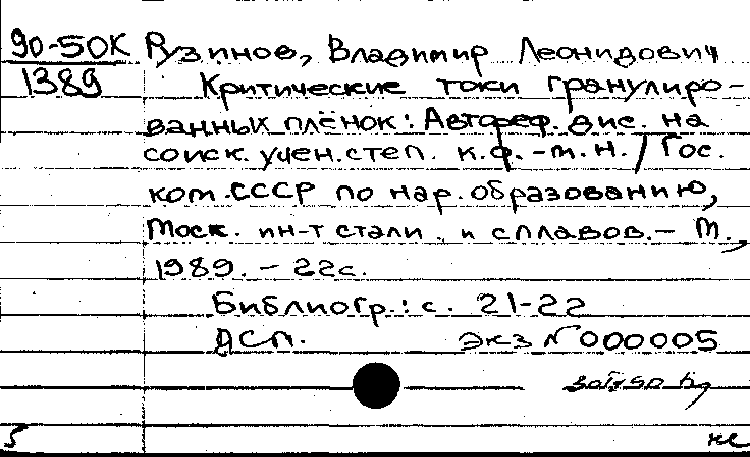 90-50К Рузинов, Владимир Леонидович
1389 Критические токи гранулиро-
ванных плёнок: Автореф. дис. на
соиск. учен. степ. к.ф.-м.н. / Гос.
ком. СССР по нар. образованию,
Моск. ин-т стали и сплавов. - М.,
1989. - 22с.
Библиогр.: с. 21-22
ДСП. экз № 000005
5 нс